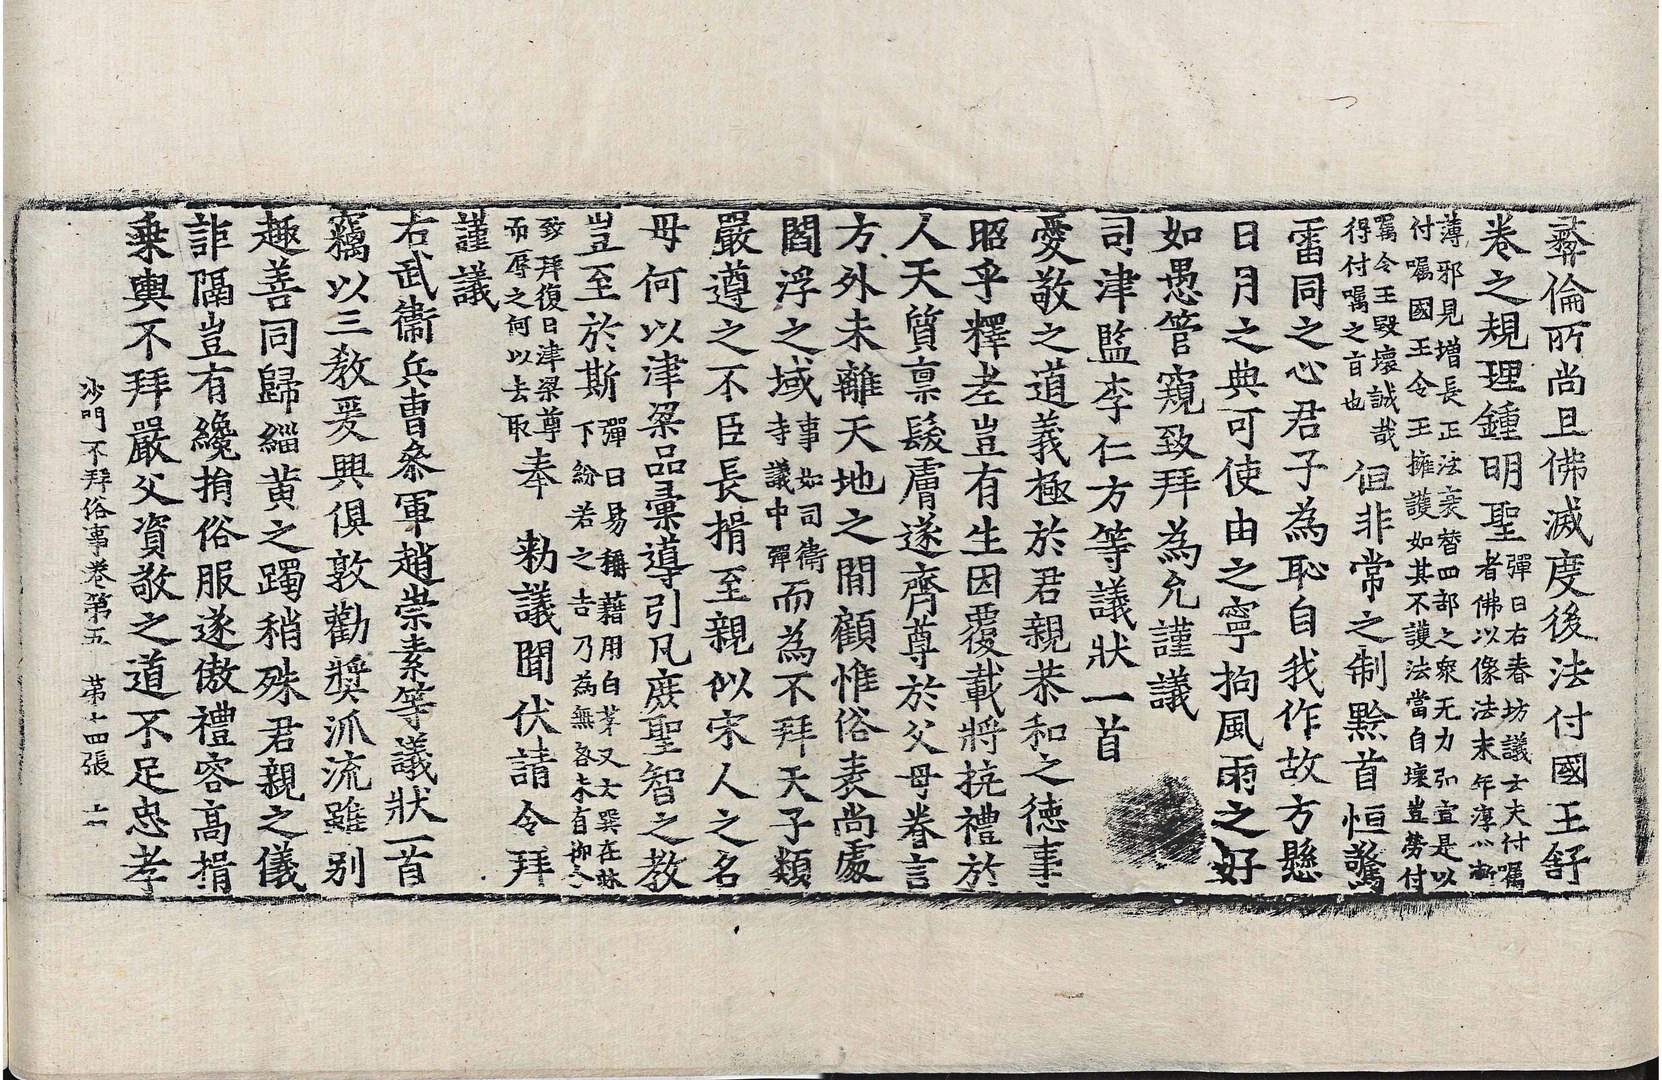 彝倫所尚且佛滅度後法付國王舒
卷之規理鍾明聖者佛以像法末年淳心漸
彈曰右春坊議云夫付囑
薄邪見增長正法衰替四部之衆无力弘宣是以
付囑國王令王擁護如其不護法當自壞豈勞付
囑令王毀壞誠哉
得付囑之旨也但非常之制黔首恒驚
雷同之心君子為恥自我作故方懸
日月之典可使由之寧拘風雨之好
如愚管窺致拜為允謹議
司津監李仁方等議狀一首
愛敬之道義極於君親恭和之德事
昭乎釋老豈有生因覆載將抗禮於
人天質禀髮膚遂齊尊於父母眷言
方外未離天地之間顧惟俗表尚處
閻浮之域事如司衛寺議中彈而為不拜天子類
嚴遵之不臣長揖至親似宋人之名
母何以津梁品彙導引凡庶聖智之教
豈至於斯彈曰易稱藉用白茅又大巽在牀
下紛若之吉乃為無咎未有抑令
致拜復曰津梁尊
而辱之何以去取奉 勑議聞伏請令拜
謹議
右武衞兵曹叅軍趙崇素等議狀一首
竊以三教爰興俱敦勸奬派流雖别
趣善同歸緇黃之躅稍殊君親之儀
詎隔豈有纔揖俗服遂傲禮容高揖
乗輿不拜嚴父資敬之道不足忠孝
沙門不拜俗事卷第五 苐十四張